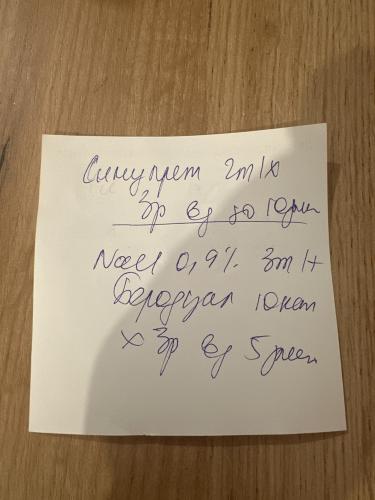 Синупрет 2т/х
3р вд до 10 дня
NaCl 0,9% 3ml+
Беродуал 10кап
х 3р вд 5 дней